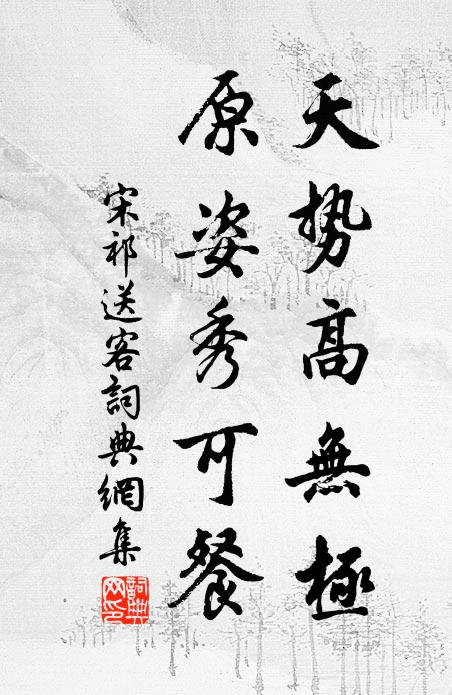 天势高無極
原姿秀可餐
宋祁送客詞典網集